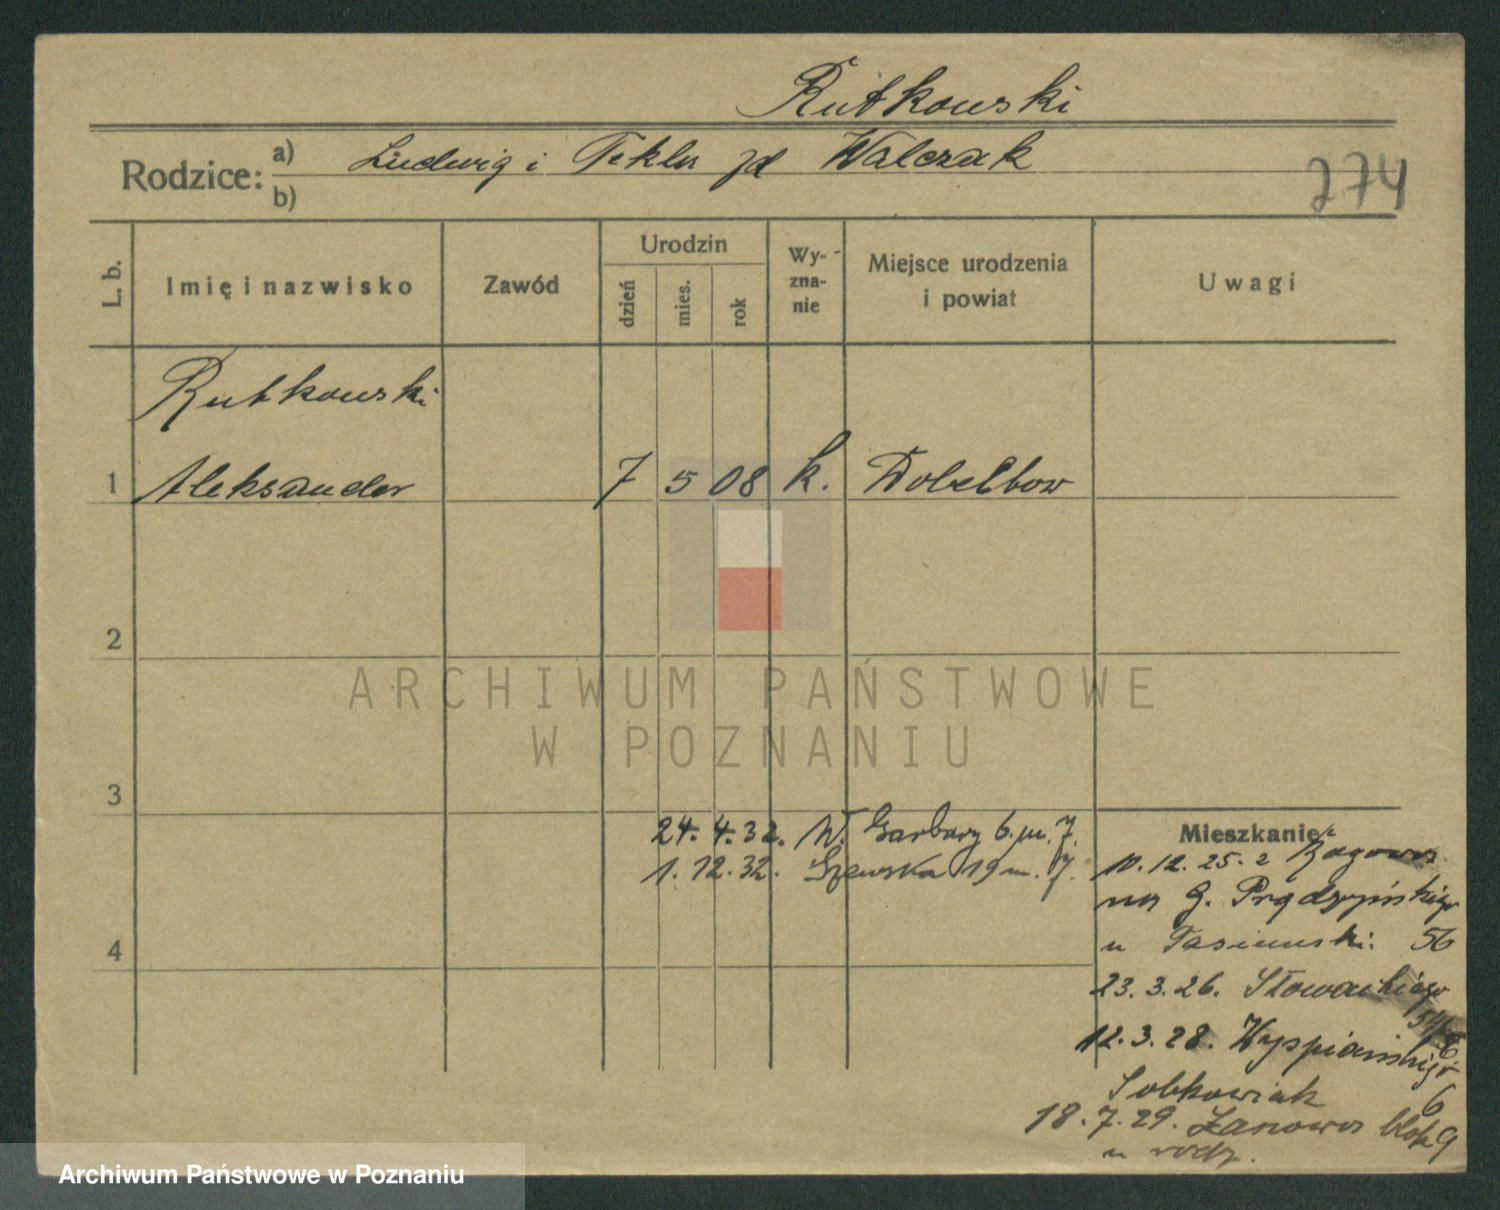 Rutkowski
Rodzice: a) Ludwig i Tekla zd Walczak
b)
274
L. b.
Imię i nazwisko
Zawód
Urodzin
dzień
mies.
rok
Wy-
zna-
nie
Miejsce urodzenia
i powiat
Uwagi
Rutkowski
1 Aleksander 7 5 08 k.
2
ARCHIWUM PAŃSTWOWE
W POZNANIU
3
24. 4. 32. W. Garbary 6. m. 7.
1. 12. 32. Szewska 19 m. 7.
Mieszkanie
12. 25. z
na G. Prądzyńskiego
u 56
4
23. 3. 26. Słowackiego
12. 3. 28. Wyspiańskiego
6
Sobkowiak
18. 7. 29. Łanowa blok 9
u rodz.
Archiwum Państwowe w Poznaniu